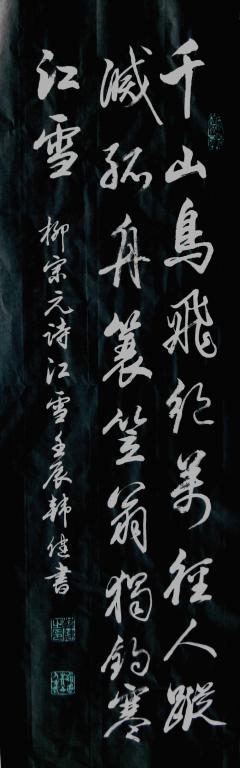 千山鳥飛絕萬徑人蹤
滅孤舟蓑笠翁獨釣寒
江雪
柳宗元詩江雪壬辰韩健書